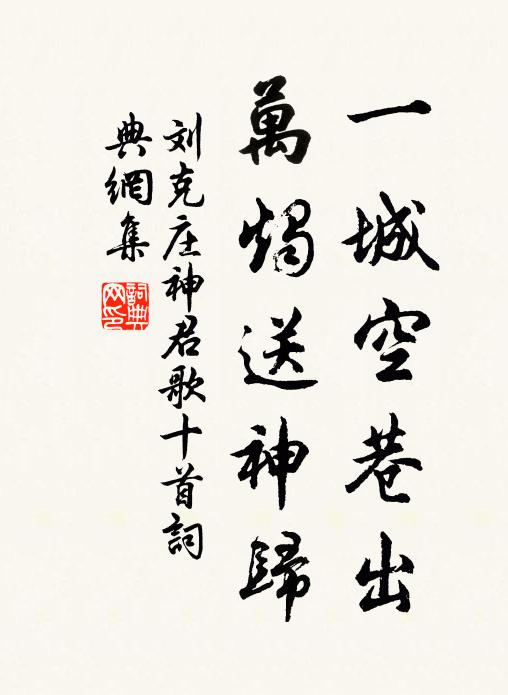 一城空巷出
萬燭送神歸
刘克庄神君歌十首詞
典網集
詞典
网印